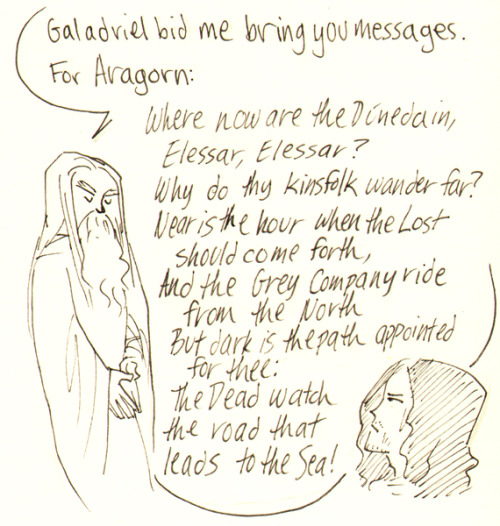 Galadriel bid me bring you messages.
For Aragorn:
Where now are the Dúnedain,
Elessar, Elessar?
Why do thy kinsfolk wander far?
Near is the hour when the Lost
should come forth,
And the Grey Company ride
from the North
But dark is the path appointed
for thee:
The Dead watch
the road that
leads to the Sea!